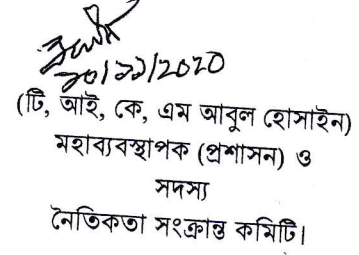 ২০/১১/2020
(টি, আই, কে, এম আবুল হোসাইন)
মহাব্যবস্থাপক (প্রশাসন) ও
সদস্য
নৈতিকতা সংক্রান্ত কমিটি।